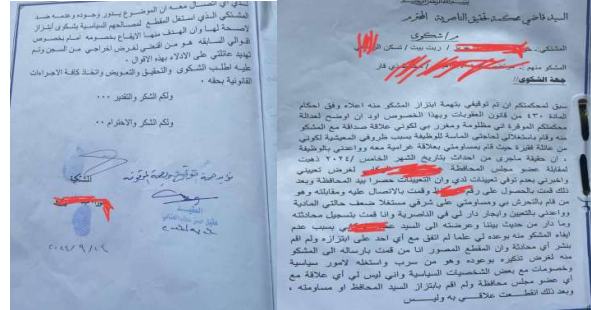 السيد قاضي محكمة تحقيق الناصرية المحترم
م/ شكوى
المشتكي
ربت بيت / تسكن
المشكو منهم
ذي قار
جهة الشكوى//
سبق لمحكمتكم ان تم توقيفي بتهمة ابتزاز المشكو منه اعلاه وفق احكام
المادة ٤٣٠ من قانون العقوبات وبهذا الخصوص اود ان اوضح لعدالة
محكمتكم الموقرة اني مظلومة ومغرر بي لكوني علاقة صداقة مع المشكو
منه وقام باستغلالي لحاجتي الماسة للوظيفة بسبب ظروفي المعيشية لكوني
من عائلة فقيرة حيث قام بمساومتي بعلاقة غرامية معه وواعدني بالوظيفة
، ان حقيقة ماجرى من احداث بتاريخ الشهر الخامس /٢٠٢٤ ذهبت
لمقابلة عضو مجلس المحافظة لغرض تعييني
واخبرني بعدم توفي تعيينات لدي وان التعيينات حصرا بيد المحافظة وبعد
ذلك قمت بالحصول على رقم وقمت بالاتصال عليه ومقابلته وهو
من قام بالتحرش بي ومساومتي على شرفي مستغلا ضعف حالتي المادية
وواعدني بالتعيين وايجار دار لي في الناصرية وانا قمت بتسجيل محادثته
وما دار من حديث بيننا وعرضته الى السيد بسبب عدم
ايفاء المشكو منه بوعده لي علما لم اتفق مع أي احد على ابتزازه ولم اقم
بنشر أي محادثة وان المقطع المصور انا من قمت بارساله الى المشكو
منه لغرض تذكيره بوعوده وهو من سرب واستغله لامور سياسية
وخصومات مع بعض الشخصيات السياسية واني ليس لي أي علاقة مع
أي عضو مجلس محافظة ولم اقم بابتزاز السيد المحافظ او مساومته ,
وبعد ذلك انقطعت علاقتي به وليس
لدي أي اتصال معه ان الموضوع يدور وجوده وعدمه ضد
المشتكي الذي استغل المقطع لمصالحهم السياسية بشكوى ابتزاز
لاصحة لها وان الهدف منها الايقاع بخصومه امام بخصوص
اقوالي السابقه هو من اقتضى لغرض اخراجي من السجن وتم
تهديد عائلتي على الادلاء بهذه الاقوال .
عليه اطلب الشكوى والتحقيق والتعويض واتخاذ كافة الاجراءات
القانونية بحقه .
ولكم الشكر والتقدير ...
ولكم الشكر والاحترام ..
المشتكية